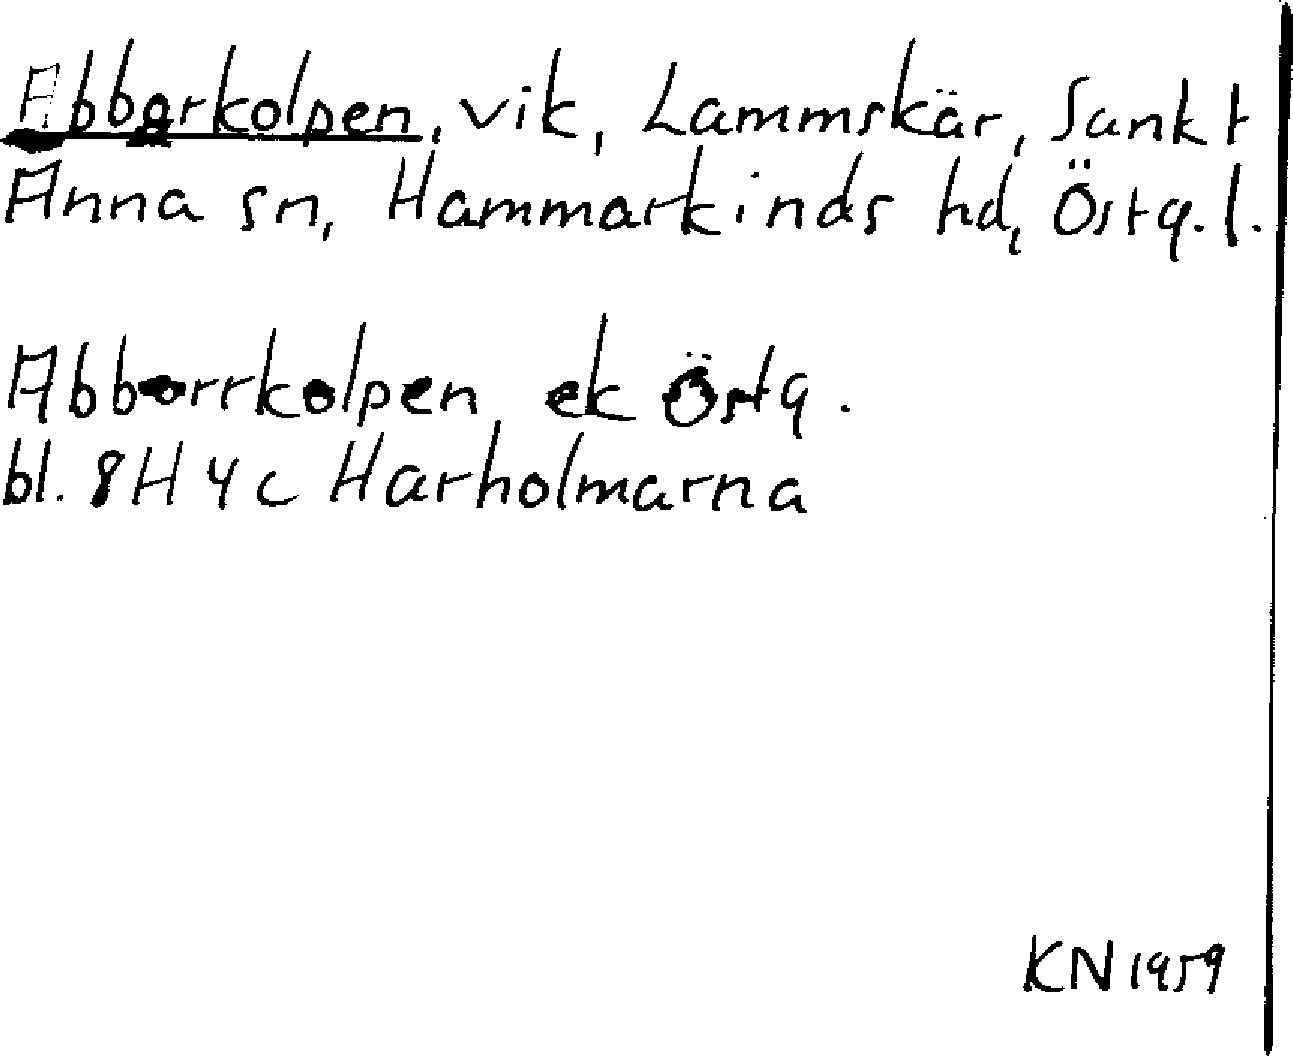 Abborkolpen, vik, Lammskär, Sankt
Anna sn, Hammarkinds hd, Östg. l.
Abborrkolpen ek Östg.
bl. 8H 4c Harholmarna
KN 1959